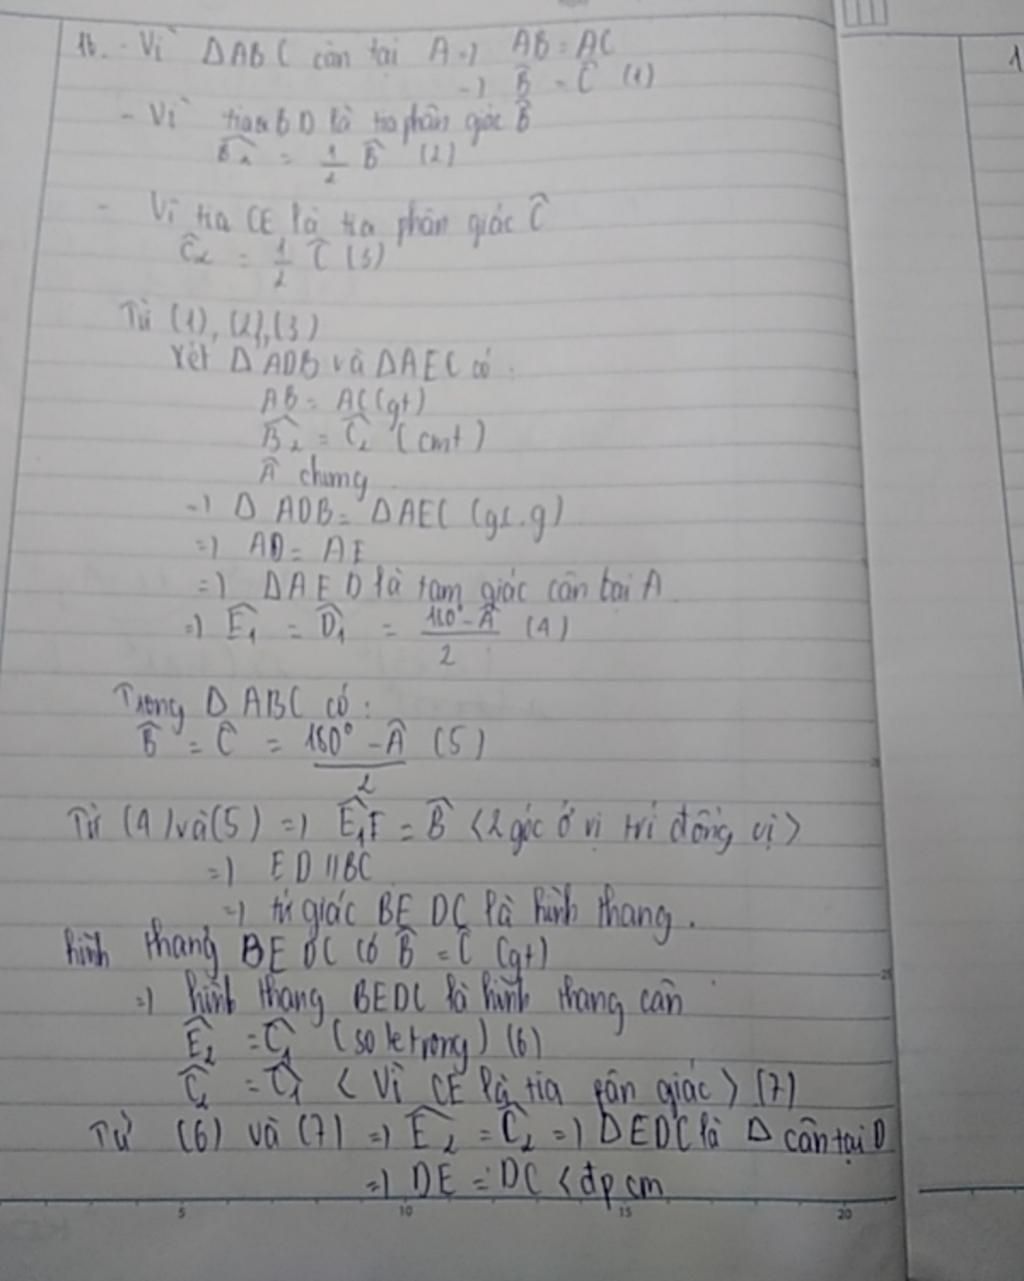 16. - Vì ΔABC cân tại A => AB = AC
=> B̂ = Ĉ (1)
- Vì tia BD là tia phân giác B̂
B̂₂ = 1/2 B̂ (2)
- Vì tia CE là tia phân giác Ĉ
Ĉ₂ = 1/2 Ĉ (3)
Từ (1), (2), (3)
Xét ΔADB và ΔAEC có:
AB = AC (gt)
B̂₂ = Ĉ₂ (cmt)
Â chung
=> ΔADB = ΔAEC (g.c.g)
=> AD = AE
=> ΔAED là tam giác cân tại A
=> Ê₁ = D̂₁ = (180° - Â)/2 (4)
Trong ΔABC có:
B̂ = Ĉ = (180° - Â)/2 (5)
Từ (4) và (5) => Ê₁ = B̂ <2 góc ở vị trí đồng vị>
=> ED // BC
=> tứ giác BEDC là hình thang.
hình thang BEDC có B̂ = Ĉ (gt)
=> hình thang BEDC là hình thang cân
Ê₂ = Ĉ₁ (so le trong) (6)
Ĉ₂ = Ĉ₁ < Vì CE là tia pân giác > (7)
Từ (6) và (7) => Ê₂ = Ĉ₂ => ΔEDC là Δ cân tại D
=> DE = DC <đpcm
1
5 10 15 20